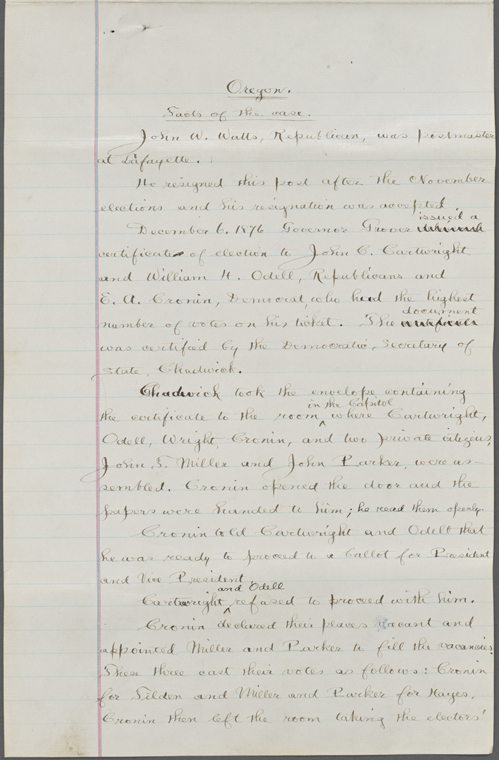 Oregon.
Facts of the case.
John W. Watts, Republican, was postmaster
at Lafayette.
He resigned this post after the November
elections and his resignation was accepted
issued a
December 6, 1876 Governor Grover
certificate of election to John C. Cartwright
and William H. Odell, Republicans and
E. A. Cronin, Democrat, who had the highest
document
number of votes on his ticket. The certificate
was certified by the Democratic, Secretary of
State, Chadwick.
Chadwick took the envelope containing
in the Capitol
the certificate to the room ^ where Cartwright,
Odell, Wright, Cronin, and two private citizens,
John S. Miller and John Parker, were as
sembled. Cronin opened the door and the
papers were handed to him; he read them openly.
Cronin told Cartwright and Odell that
he was ready to proceed to a ballot for President
and Vice President
and Odell
Cartwright ^ refused to proceed with him.
Cronin declared their places vacant and
appointed Miller and Parker to fill the vacancies.
These three cast their votes as follows: Cronin
for Tilden and Miller and Parker for Hayes.
Cronin then left the room taking the electors'